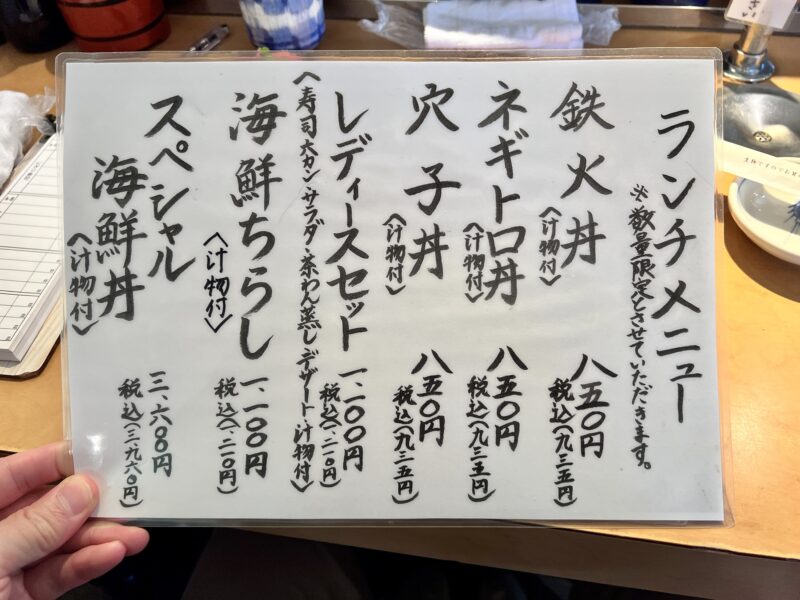 ランチメニュー
※数量限定とさせていただきます。
鉄火丼
〈汁物付〉
八五〇円
税込(九三五円)
ネギトロ丼
〈汁物付〉
八五〇円
税込(九三五円)
穴子丼
〈汁物付〉
八五〇円
税込(九三五円)
レディースセット
一、一〇〇円
税込(一、二一〇円)
〈寿司六カン・サラダ・茶わん蒸し・デザート・汁物付〉
海鮮ちらし
〈汁物付〉
一、一〇〇円
税込(一、二一〇円)
スペシャル
海鮮丼
〈汁物付〉
三、六〇〇円
税込(三、九六〇円)